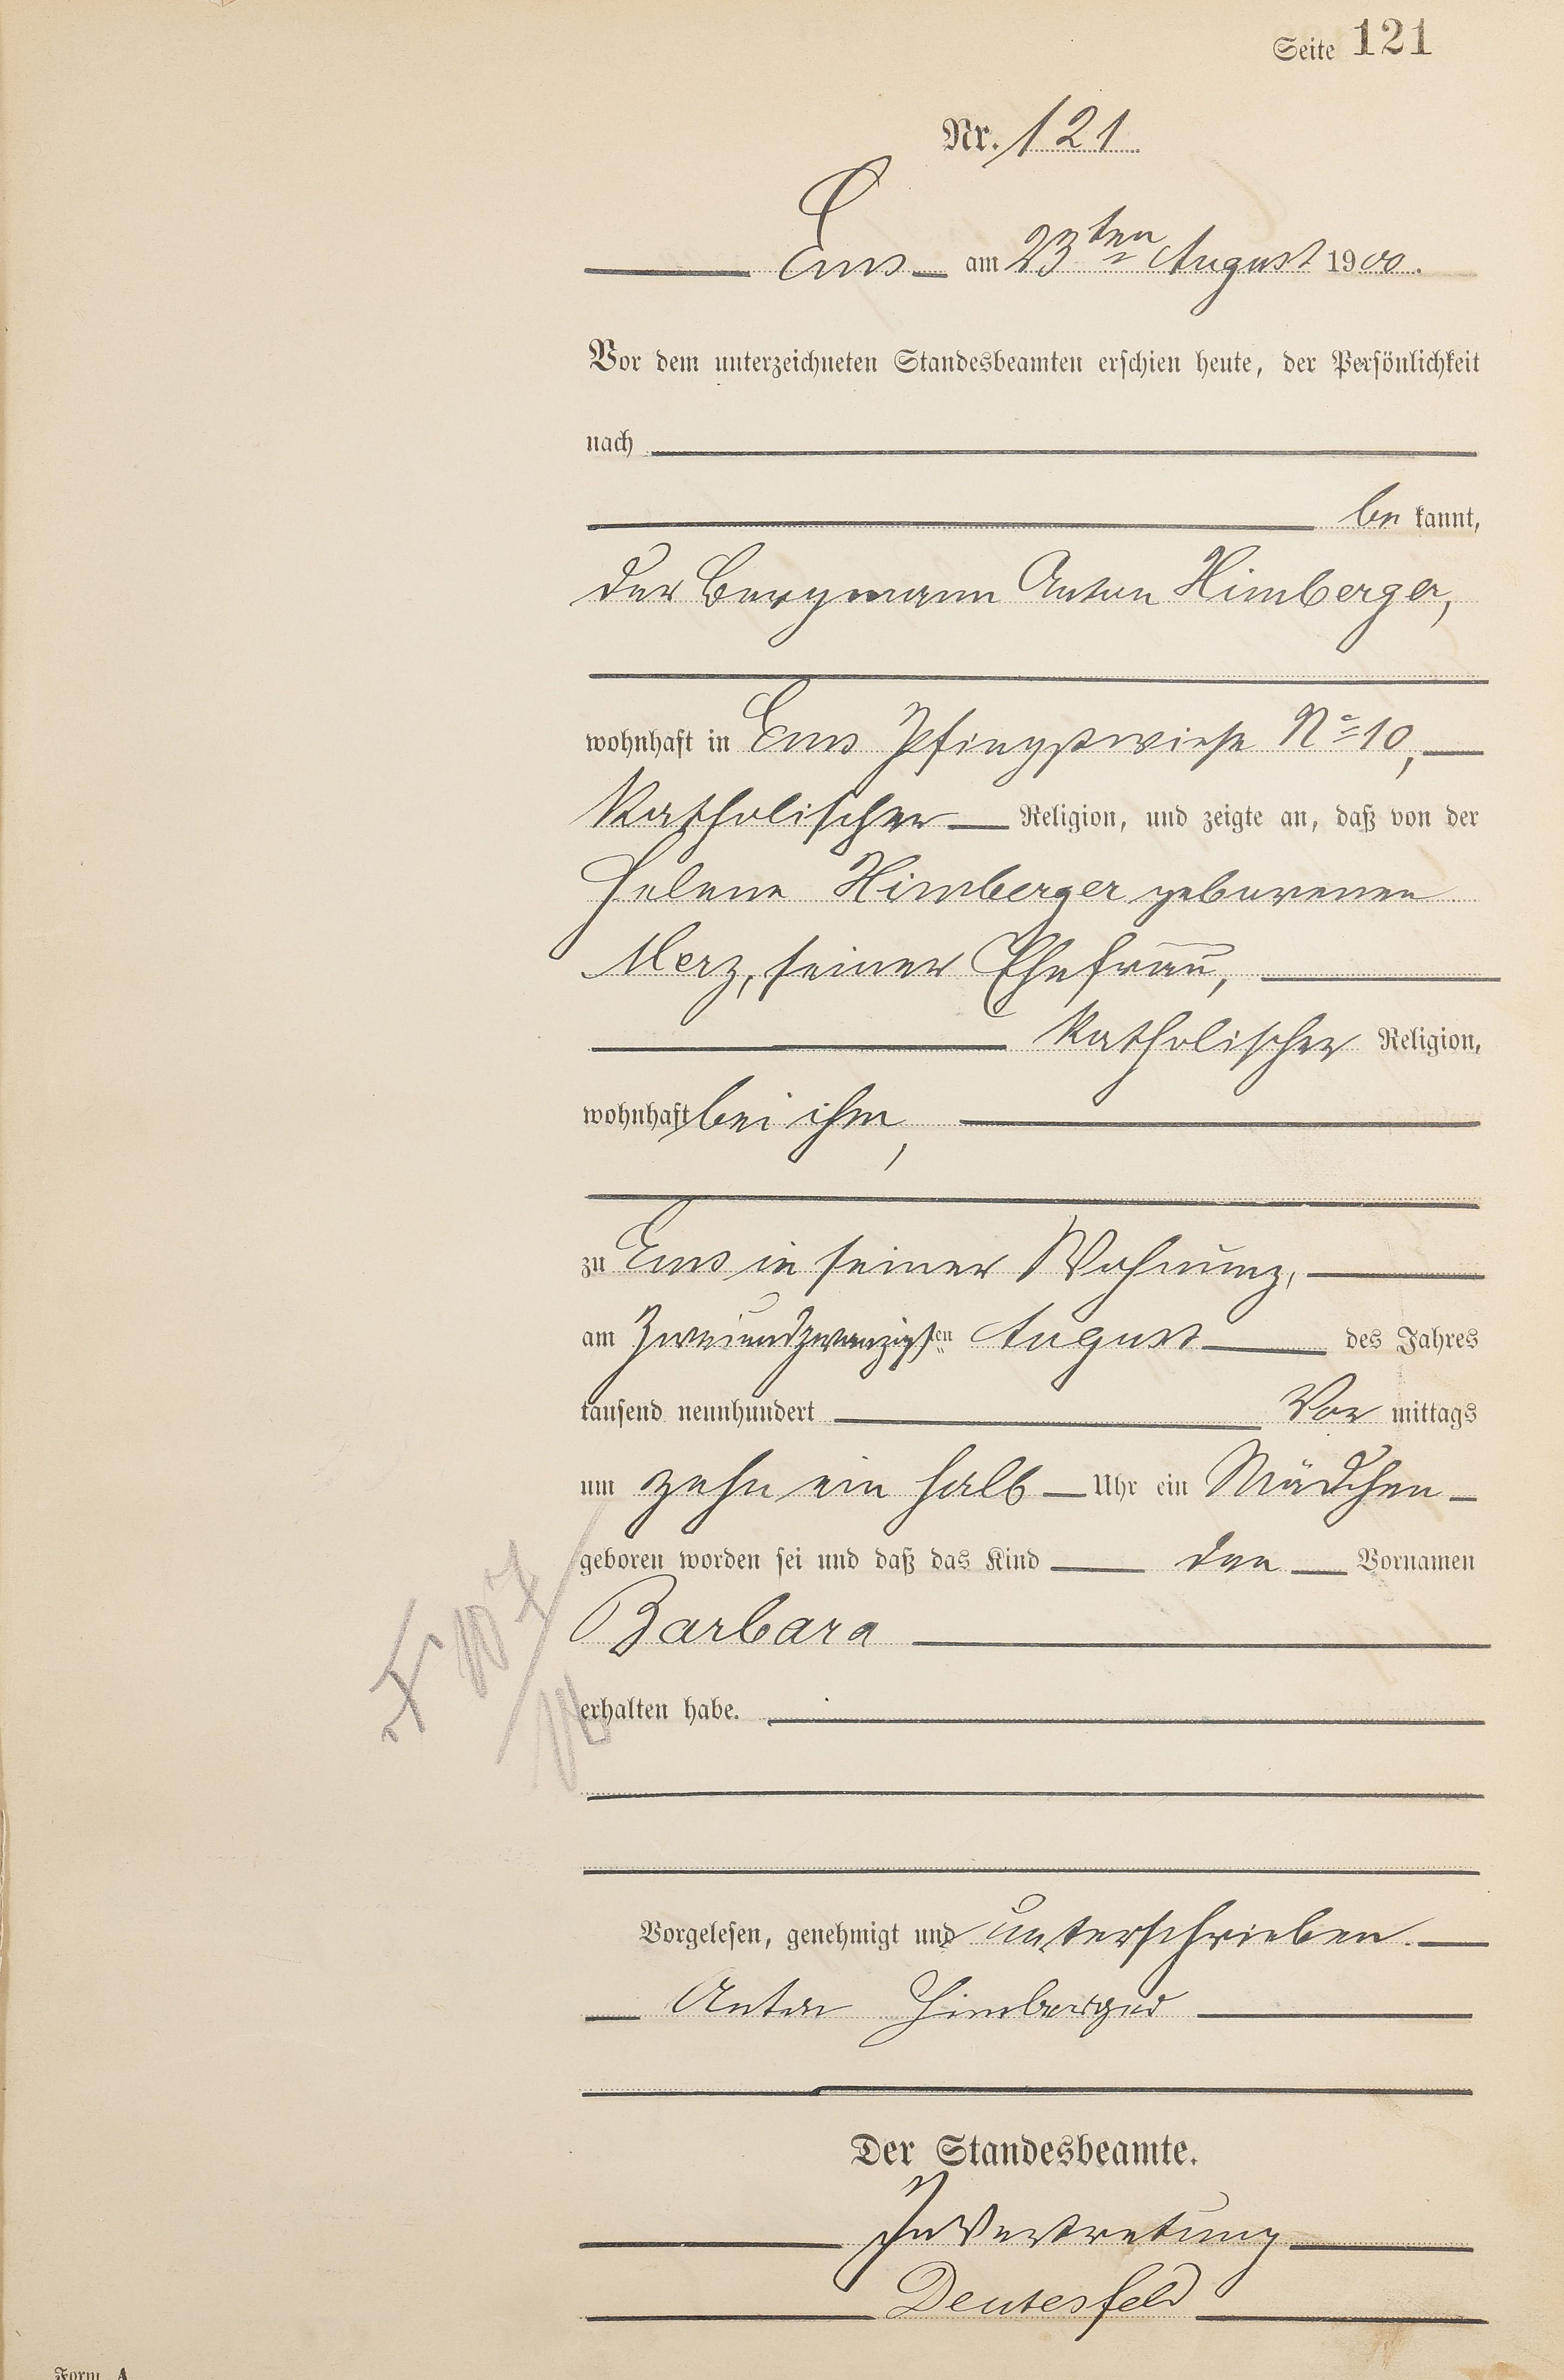 Seite 121
Nr. 121
Ems am 23ten August 1900.
Vor dem unterzeichneten Standesbeamten erschien heute, der Persönlichkeit
nach
be kannt,
der Bergmann Anton Himberger,
wohnhaft in Ems Pfingstwiese No 10,
katholischer Religion, und zeigte an, daß von der
Helene Himberger geborenen
Merz, seiner Ehefrau,
katholischer Religion,
wohnhaft bei ihm,
zu Ems in seiner Wohnung,
am zweiundzwanzigsten August des Jahres
tausend neunhundert Vor mittags
um zehn ein halb Uhr ein Mädchen
geboren worden sei und daß das Kind den Vornamen
Barbara
erhalten habe.
Vorgelesen, genehmigt und unterschrieben.
Anton Himberger
Der Standesbeamte.
In Vertretung
Deutesfeld
Form. A